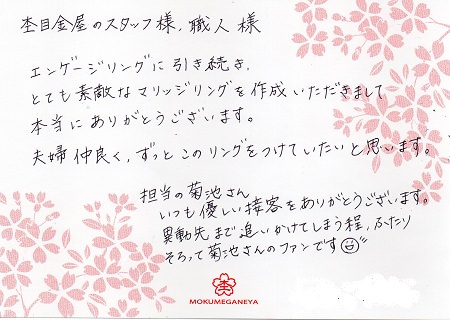 杢目金屋のスタッフ様、職人様
エンゲージリングに引き続き、
とても素敵なマリッジリングを作成いただきまして
本当にありがとうございます。
夫婦仲良く、ずっとこのリングをつけていたいと思います。
担当の菊池さん
いつも優しい接客をありがとうございます。
異動先まで追いかけてしまう程、ふたり
そろって菊池さんのファンです
杢
MOKUMEGANEYA